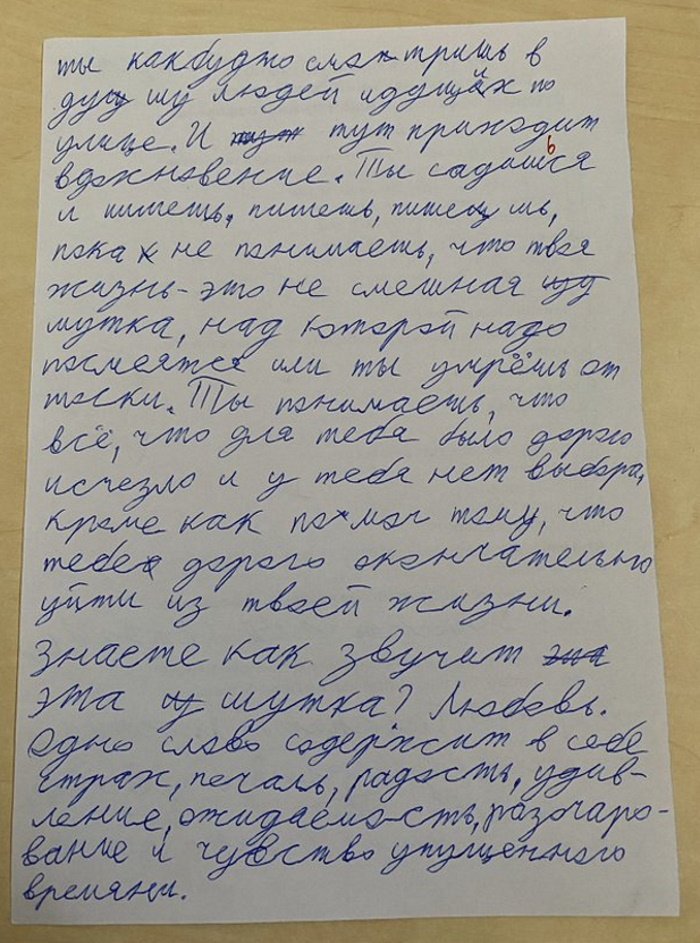 ты какбуджо смотришь в
душу людей идущих по
улице. И тут приходит
вдохновение. Ты садишься
и пишешь, пишешь, пишешь,
пока не понимаешь, что твоя
жизнь - это не смешная
шутка, над которой надо
посмеятся или ты умрёшь от
тоски. Ты понимаешь, что
всё, что для тебя было дорого
исчезло и у тебя нет выбора,
кроме как помоч тому, что
тебе дорого окончательно
уйти из твоей жизни.
Знаете как звучит
эта шутка? Любовь.
Одно слово содержит в себе
страх, печаль, радость, удив-
ление, ожидаемость, разочаро-
вание и чувство упущенного
времяни.